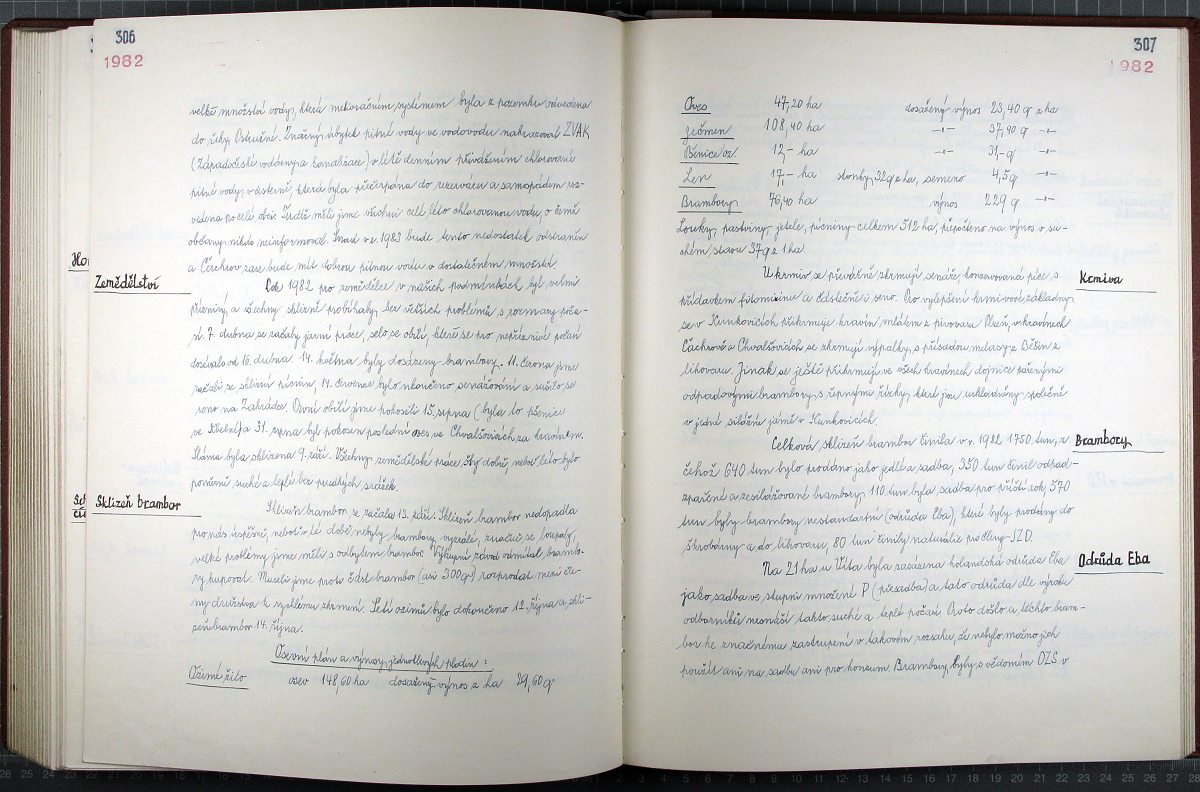 306
1982
velké množství vody, která melioračním systémem byla z pozemku odvedena
do řeky Ostružné. Značný úbytek pitné vody ve vodovodu nahrazoval ZVAK
(Západočeské vodárny a kanalizace) v létě denním přivážením chlorované
pitné vody v cisterně, která byla přečerpána do rezervoáru a samospádem roz-
vedena po celé obci. Tudíž měli jsme všichni celé léto chlorovanou vodu, o čemž
občany nikdo neinformoval. Snad v r. 1983 bude tento nedostatek odstraněn
a Čachrov zase bude mít dobrou pitnou vodu v dostatečném množství.
Zemědělství
Rok 1982 pro zemědělce v našich podmínkách byl velmi
příznivý a všechny sklizně probíhaly bez větších problémů s rozmary poča-
sí. 7. dubna se začaly jarní práce, selo se obilí, které se pro nepříznivé počasí
dosévalo od 16. dubna. 14. května byly dosázeny brambory. 11. června jsme
začali se sklizní pícnin, 14. července bylo ukončeno senážování a sušilo se
seno na Zahrádce. První obilí jsme pokosili 15. srpna (byla to pšenice
ve a 31. srpna byl pokosen poslední oves ve Chvalšovicích za kravínem.
Sláma byla sklizena 9. září. Všechny zemědělské práce šly dobře, neboť léto bylo
poměrně suché a teplé bez prudkých srážek.
Sklizeň brambor
Sklizeň brambor se začala 13. září. Sklizeň brambor nedopadla
pro nás úspěšně, neboť v té době nebyly brambory vyzrálé, značně se loupaly,
velké problémy jsme měli s odbytem brambor. Výkupní závod odmítal brambo-
ry kupovat. Museli jsme proto část brambor (asi 300 q) rozprodat mezi čle-
ny družstva k rychlému zkrmení. Setí ozimů bylo dokončeno 12. října a skli-
zeň brambor 14. října.
Osevní plán a výnosy jednotlivých plodin:
Ozimé žito osev 148,60 ha dosažený výnos z ha 29,60 q
307
1982
Oves 47,20 ha dosažený výnos 23,40 q z ha
Ječmen 108,40 ha -"- 37,90 q -"-
Pšenice oz. 12,- ha -"- 31,- q -"-
Len 17,- ha stonky 32 q z ha, semeno 4,5 q -"-
Brambory 76,40 ha výnos 229 q -"-
Louky, pastviny, jetele, pícniny celkem 512 ha, přepočteno na výnos v su-
chém stavu 37 q z 1 ha.
Krmiva
U krmiv se převážně zkrmují senáže, konzervovaná píce s
přídavkem fitomixinu a částečně i seno. Pro vylepšení krmivové základny
se v Kunkovicích přikrmuje kravám mlátem z pivovaru Plzeň, v kravínech
Čachrově a Chvalšovicích se zkrmují výpalky, s přísadou melasy z Běšin z
lihovaru. Jinak se ještě přikrmují ve všech kravínech dojnice pařenými
odpadovými brambory s řepnými řízky, které jsou uskladněny společně
v jedné silážní jámě v Kunkovicích.
Brambory
Celková sklizeň brambor činila v r. 1982 1750 tun, z
čehož 640 tun bylo prodáno jako jedlé a sadba, 350 tun činil odpad-
zpařené a zesilážované brambory, 110 tun byla sadba pro příští rok, 570
tun byly brambory nestandartní (odrůda Eba), které byly prodány do
škrobárny a do lihovaru, 80 tun činily naturálie pro členy JZD.
Odrůda Eba
Na 21 ha u Víta byla zasázena holandská odrůda Eba
jako sadba ve stupni množení P (přesadba) a tato odrůda dle výroku
odborníků nesnáší takto suché a teplé počasí. Proto došlo u těchto bram-
bor ke značnému zastrupení v takovém rozsahu, že nebylo možno jich
použít ani na sadbu ani pro konzum. Brambory byly s vědomím OZS v